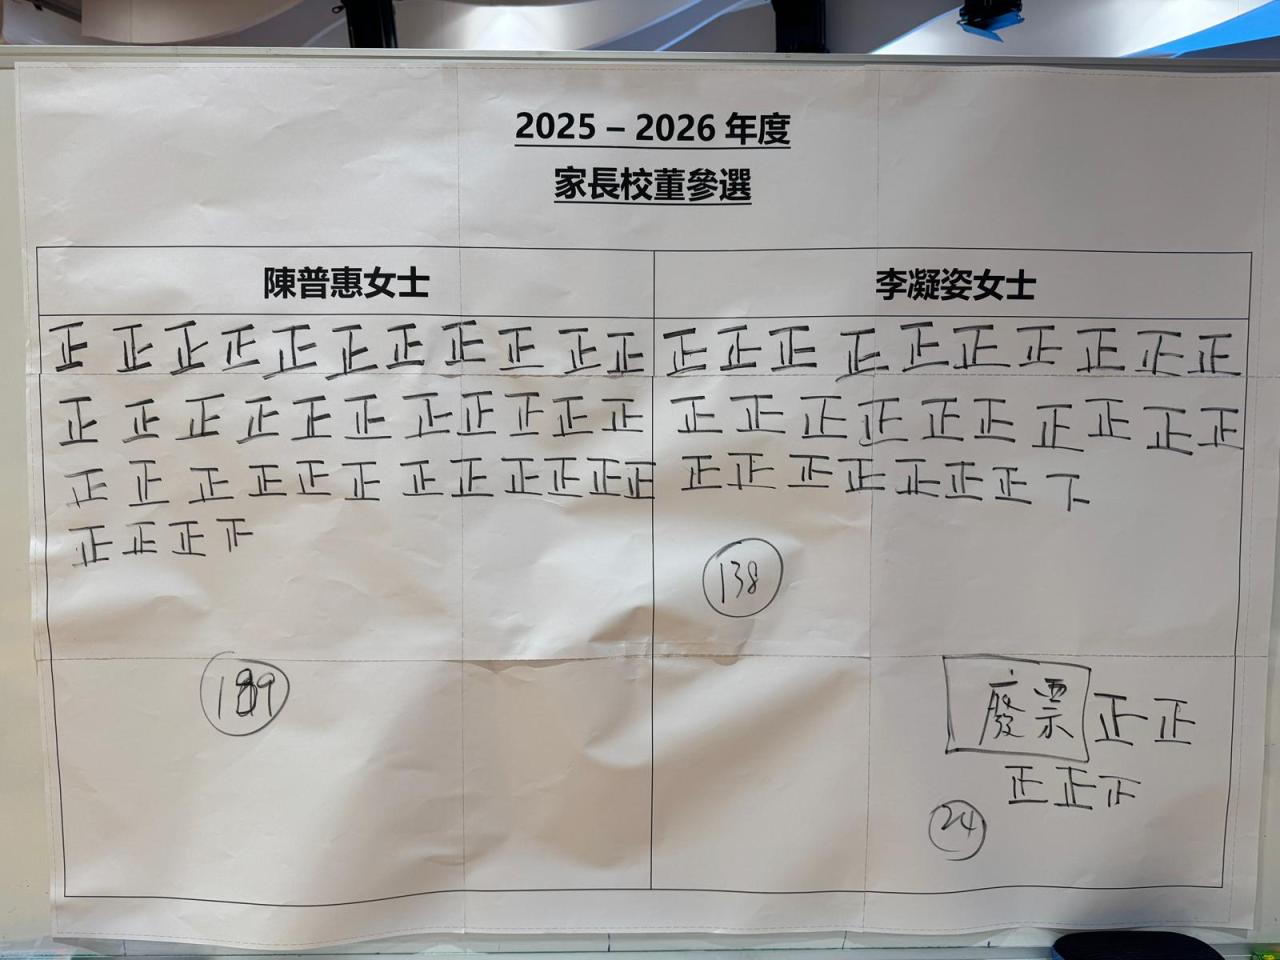 2025 – 2026 年度
家長校董參選
陳普惠女士
李凝姿女士
正 正 正 正 正 正 正 正 正 正 正
正 正 正 正 正 正 正 正 正 正 正
正 正 正 正 正 正 正 正 正 正 正 正
正 正 正 下
189
正 正 正 正 正 正 正 正 正 正
正 正 正 正 正 正 正 正 正 正
正 正 正 正 正 正 正 下
138
廢票 正 正
正 正
24